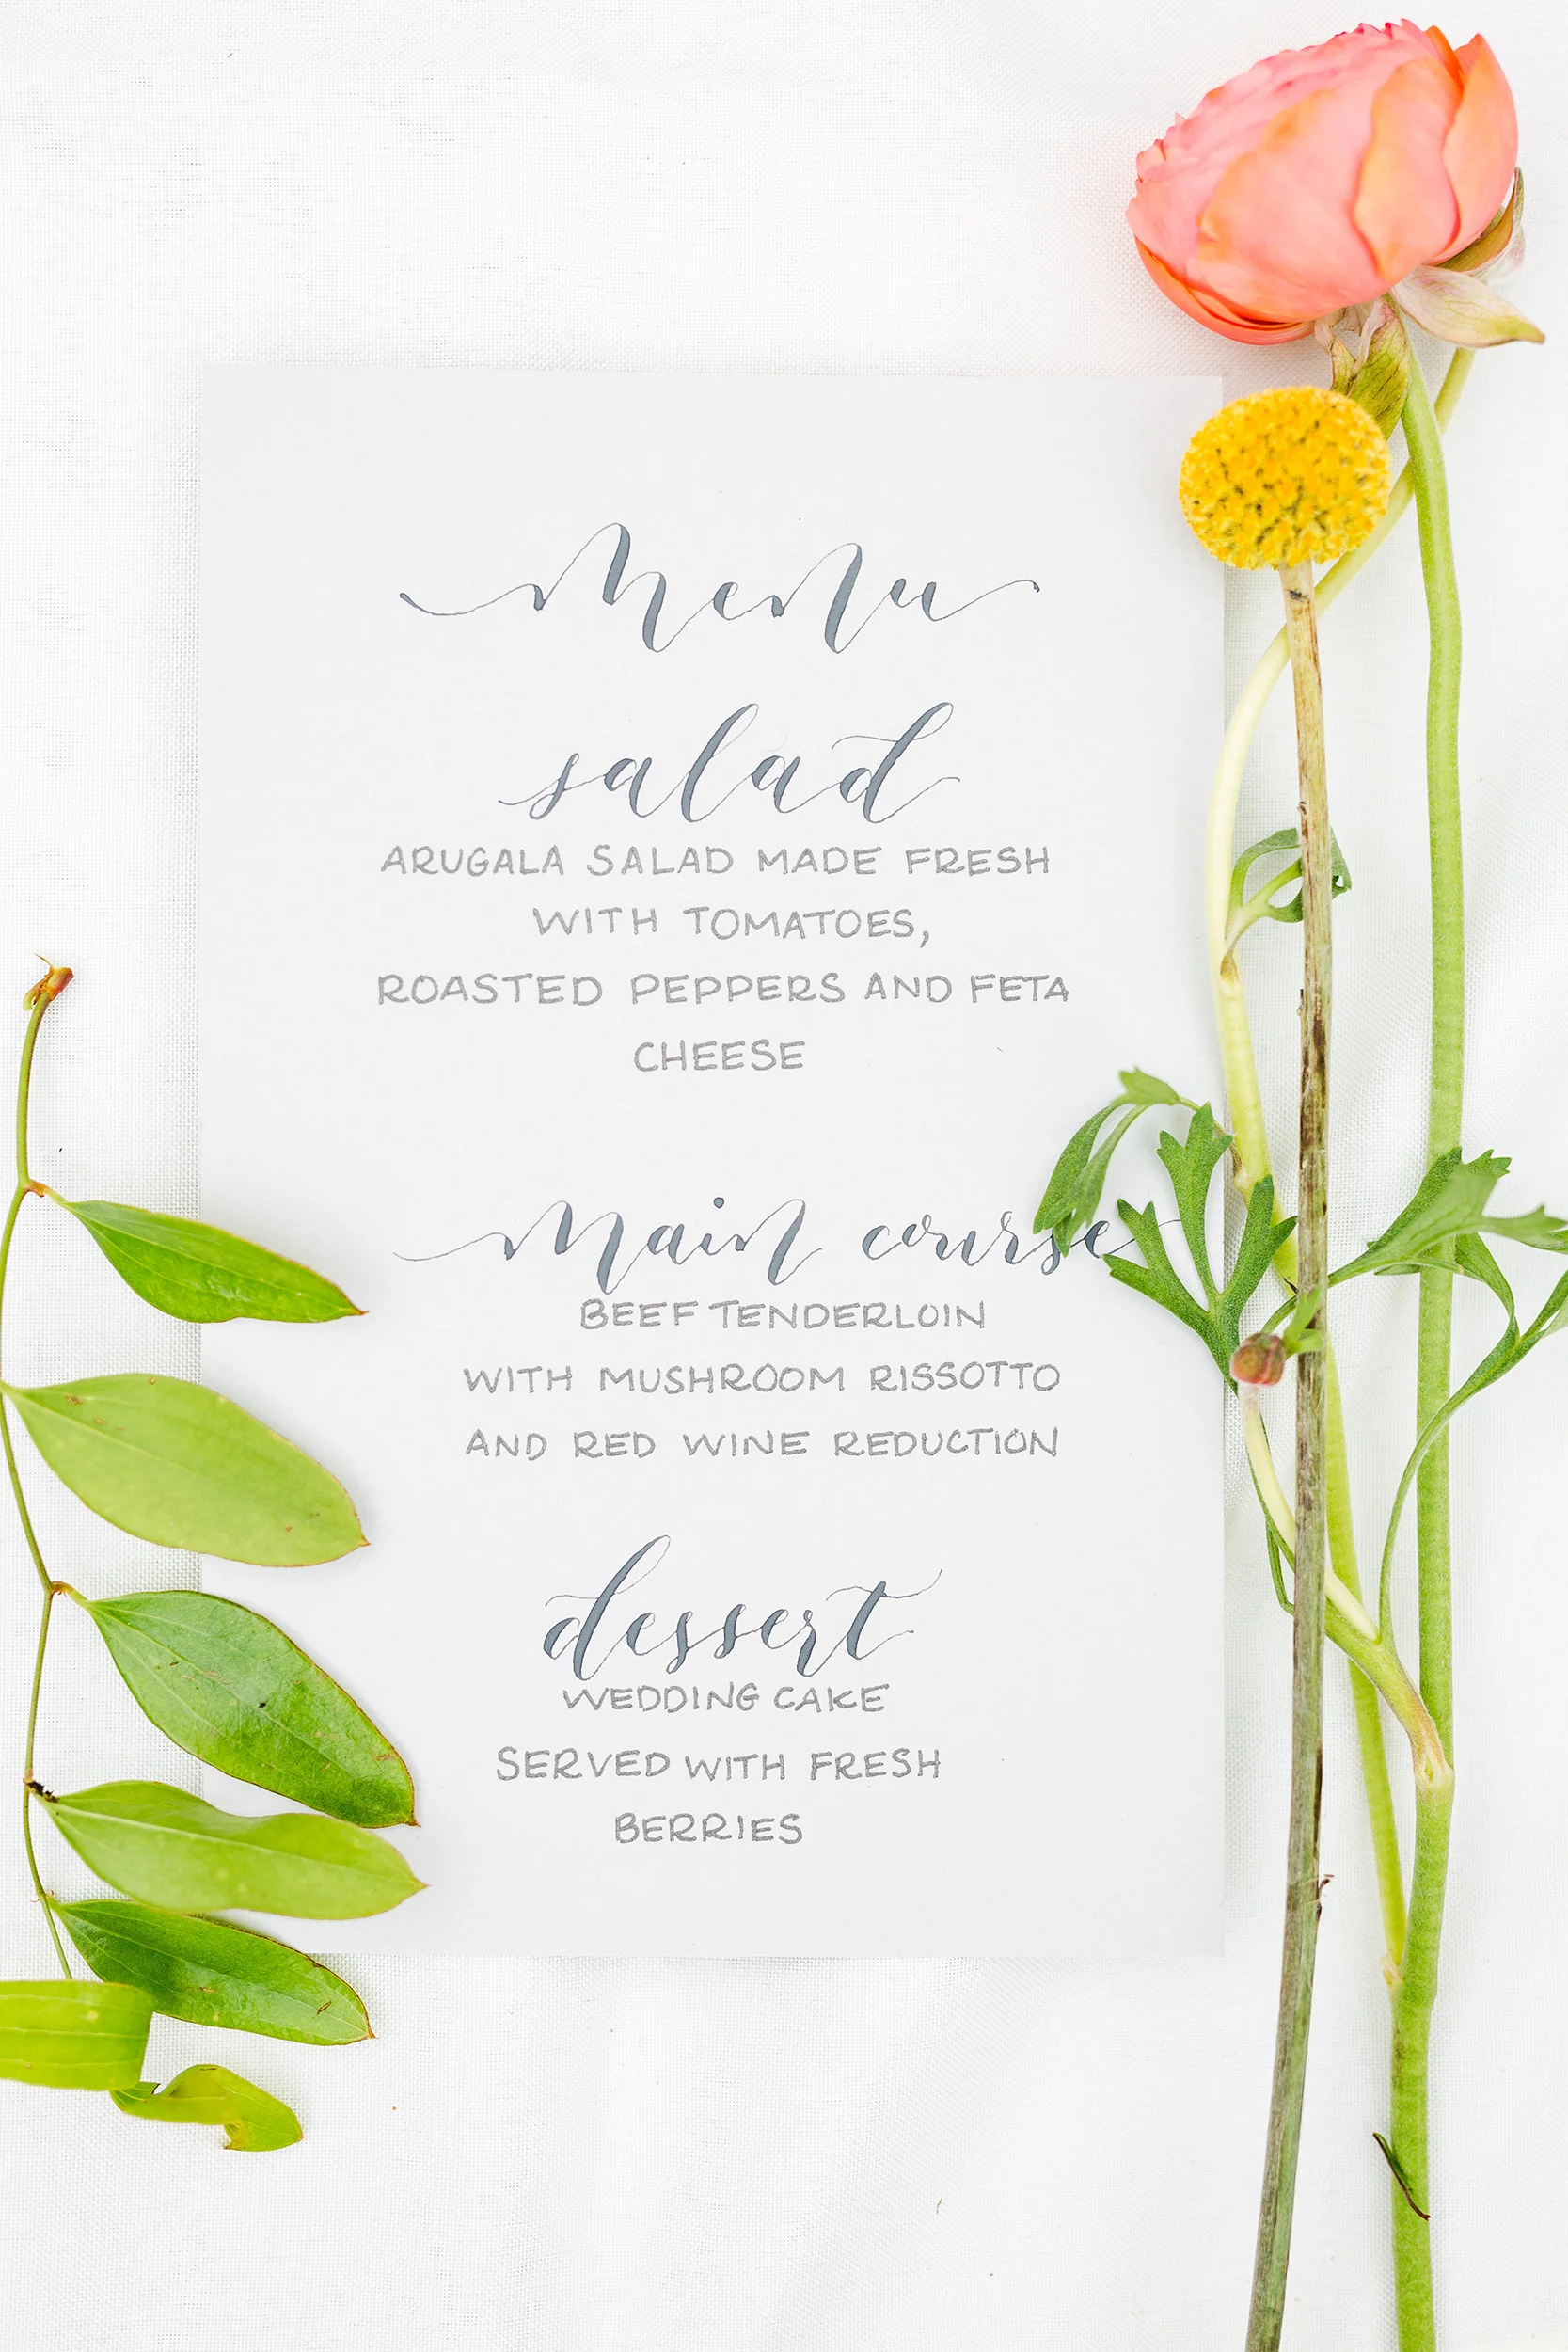 menu
salad
ARUGALA SALAD MADE FRESH
WITH TOMATOES,
ROASTED PEPPERS AND FETA
CHEESE
main course
BEEF TENDERLOIN
WITH MUSHROOM RISSOTTO
AND RED WINE REDUCTION
dessert
WEDDING CAKE
SERVED WITH FRESH
BERRIES